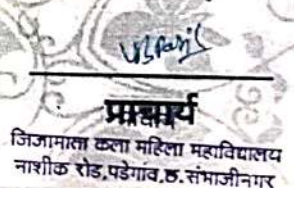 प्राचार्य
जिजामाता कला महिला महाविद्यालय
नाशीक रोड,पडेगांव,छ.संभाजीनगर